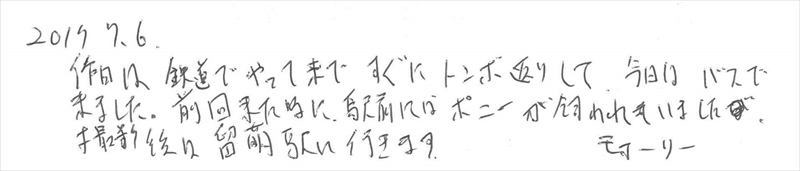 2017 7.6.
昨日は 鉄道で やって来て すぐに トンボ返りして 今日は バスで
来ました。前回来た時に、駅前にはポニーが飼われていましたが、
撮影後は 留萌駅に行きます。
モオーリー